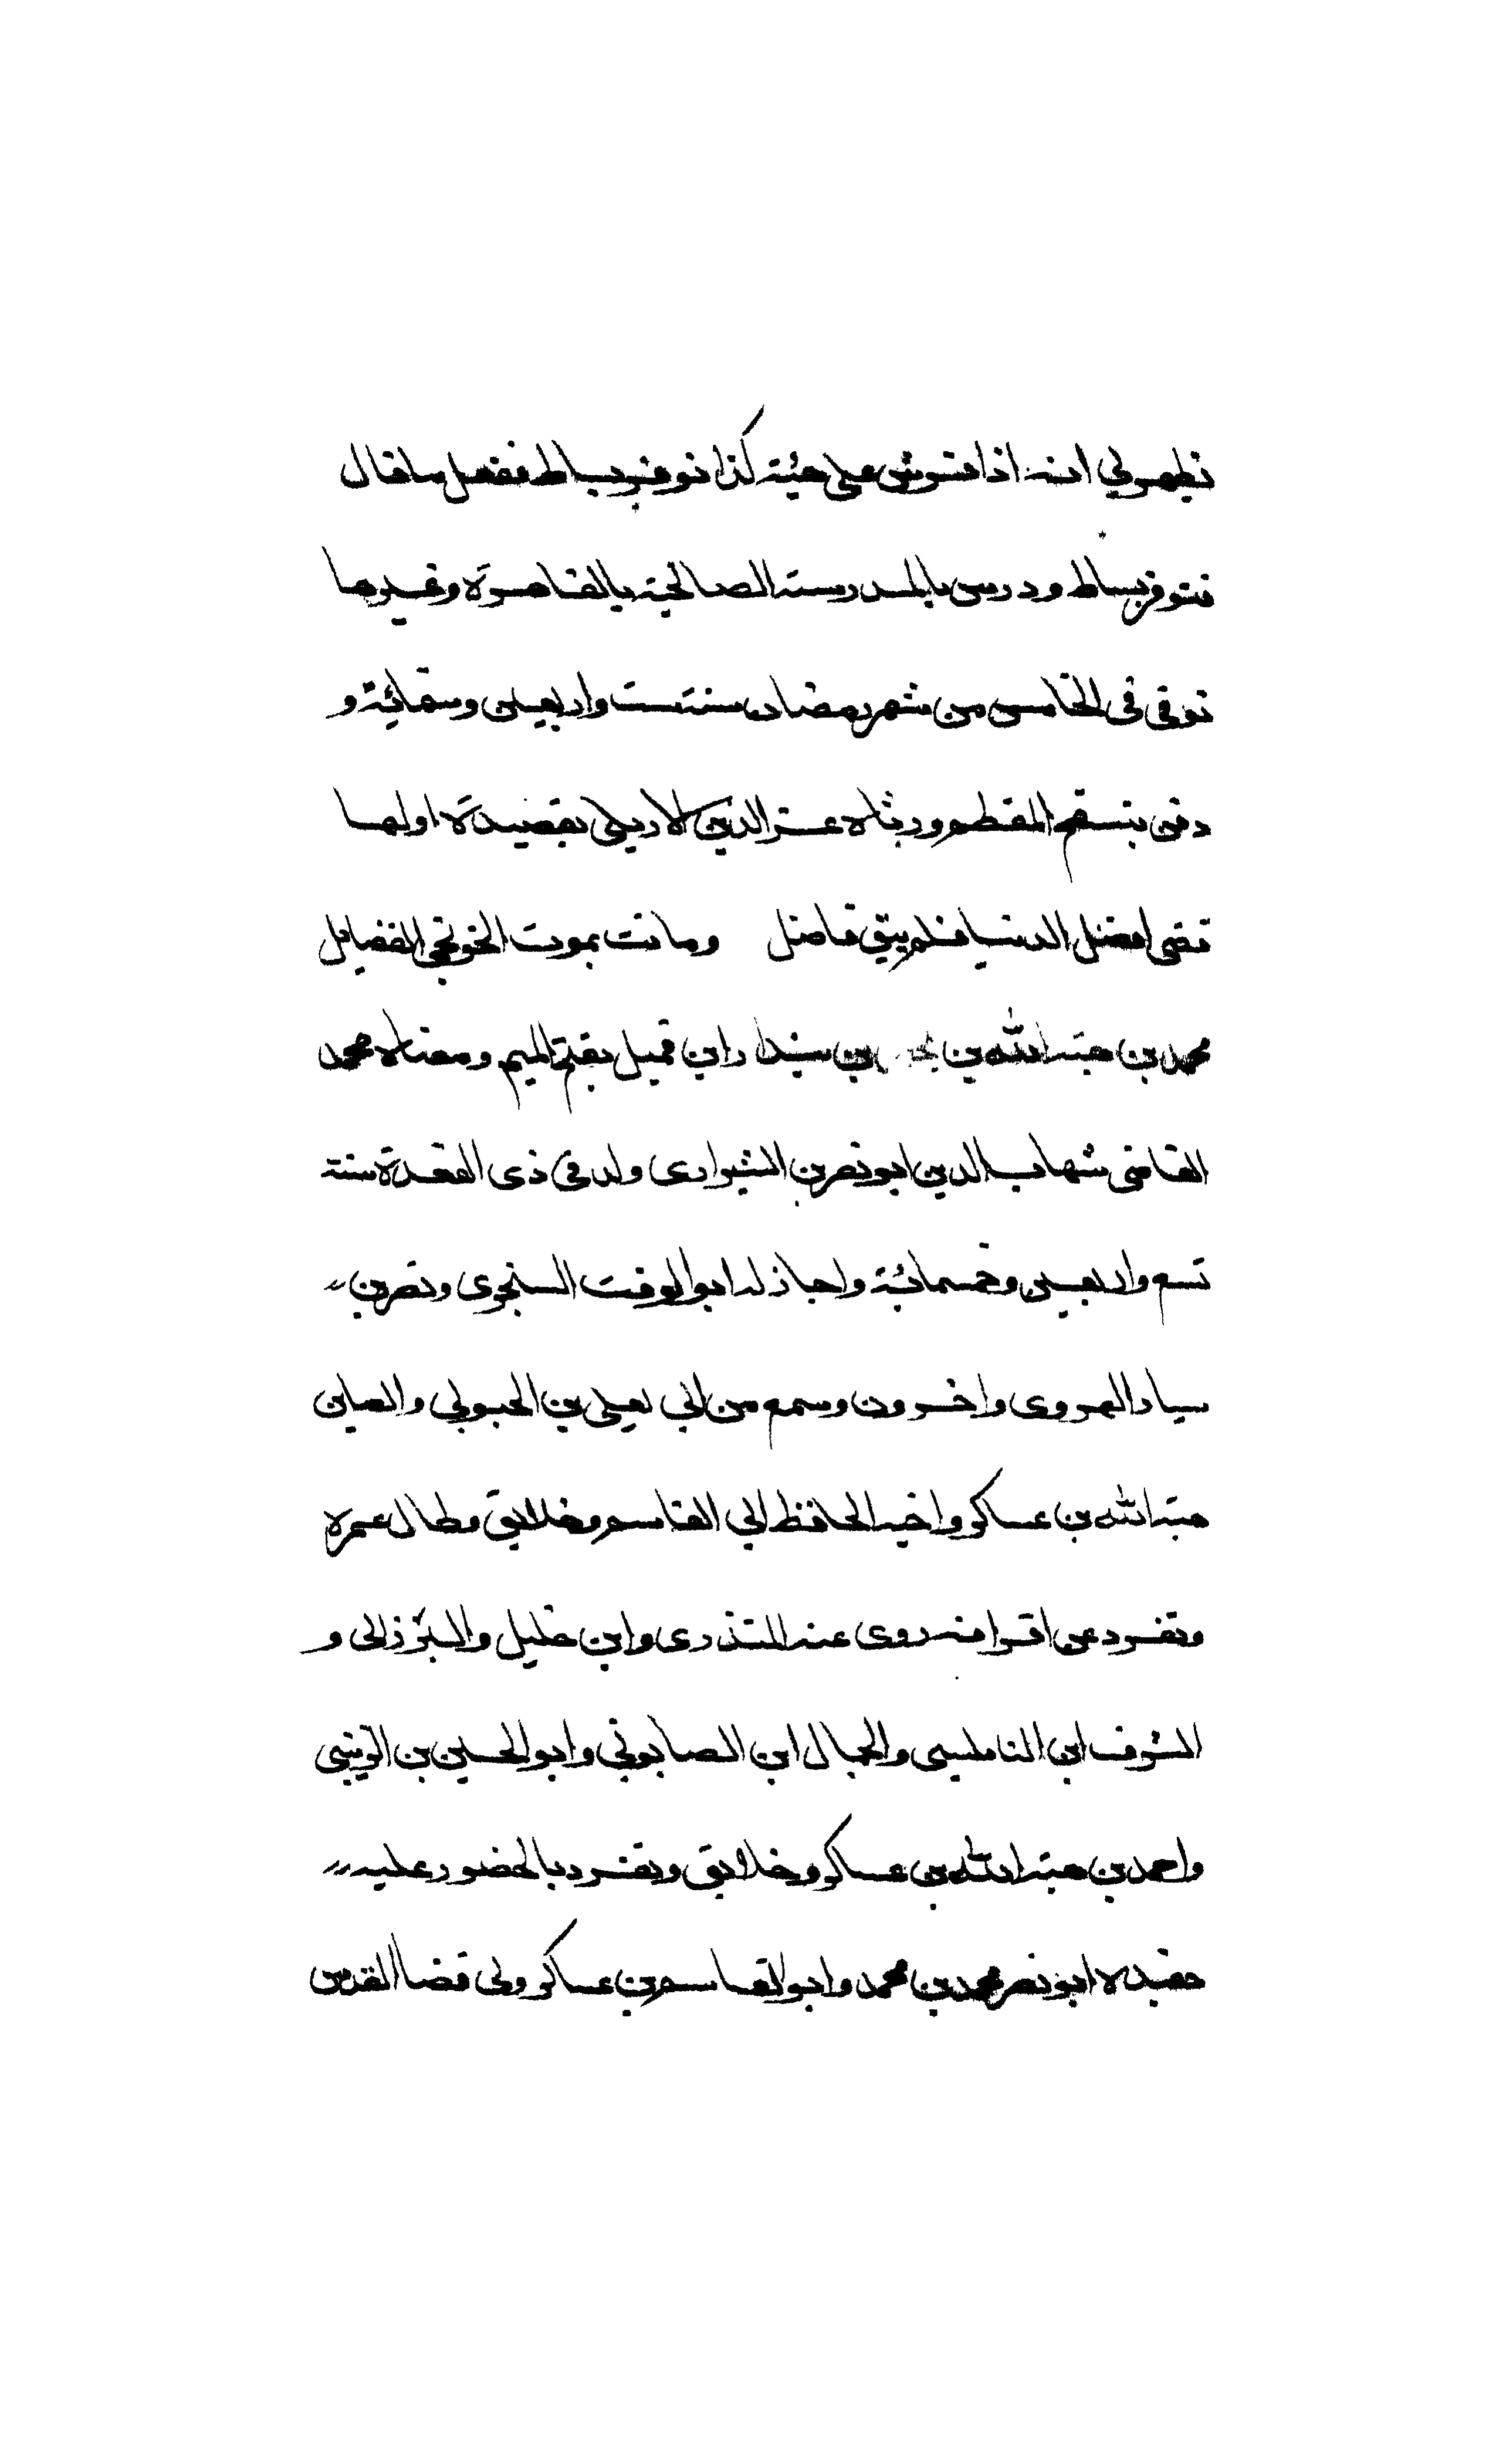 نظهر لي انه اذا فترش على هيئة كذا توفر بساط ففعل ما قال
فتوفر بساط ودرس بالمدرسة الصالحية بالقاهرة وغيرها
توفى فى الخامس من شهر رمضان سنة ست واربعين وستمائة و
دفن بسفح المقطم ورثاه عز الدين الاربلي بقصيدة اولها
قضى افضل الدنيا فلم يبق فاضل وماتت بموت الخونجي الفضايل
محمد بن هبة الله بن بن بندار ابن مميل بفتح الميم ومعناه محمد
القاضى شهاب الدين ابو نصر بن الشيرازى ولد فى ذى القعدة سنة
تسع واربعين وخمسمائة واجاز له ابو الوقت السنجرى ونصر بن
سيار الهروى واخرون وسمع من ابي يعلى بن الحبوبي والصاين
هبة الله بن عساكر واخيه الحافظ ابي القاسم وخلايق وطال عمره
وتفرد عن اقرانه روى عنه المنذرى وابن خليل والبرزالى و
الشرف ابن النابلسى والجمال ابن الصابوني وابو الحسين بن اليونيني
واحمد بن هبة الله بن عساكر وخلايق وتفرد بالحضور عليه
حفيده ابو نصر محمد بن محمد وابو القاسم بن عساكر ولى قضا القدس